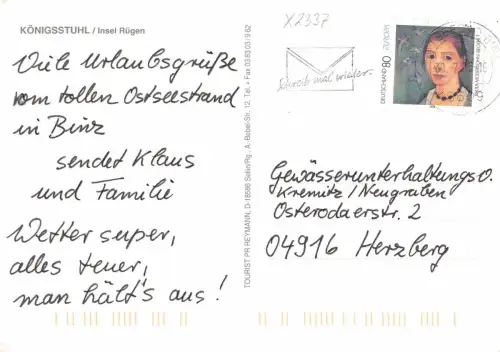 KÖNIGSSTUHL / Insel Rügen
Viele Urlaubsgrüße
vom tollen Ostseestrand
in Binz
sendet Klaus
und Familie
Wetter super,
alles teuer,
man hält's aus!
TOURIST PR REYMANN, D-18586 Sellin/Rg., A.-Bebel-Str. 12, Tel. + Fax 03 83 03 / 9 62
X2337
Schreib mal wieder.
DEUTSCHLAND 80 EUROPA
Gewässerunterhaltungsv.
Kremitz/Neugraben
Osterodaerstr. 2
04916 Herzberg